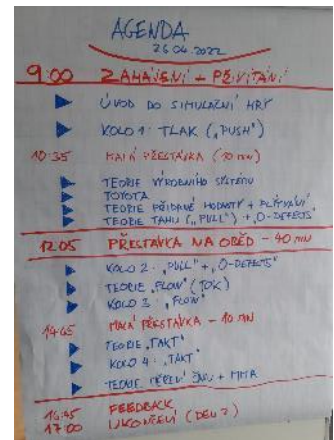 AGENDA
26.04.2022
9:00 ZAHÁJENÍ + PŘIVÍTÁNÍ
ÚVOD DO SIMULAČNÍ HRY
KOLO 1: TLAK („PUSH“)
10:35 MALÁ PŘESTÁVKA (10 min)
TEORIE VÝROBNÍHO SYSTÉMU
TOYOTA
TEORIE PŘIDANÉ HODNOTY + PLÝTVÁNÍ
TEORIE TAHU („PULL“) + „0-DEFECTS“
12:05 PŘESTÁVKA NA OBĚD – 40 min
KOLO 2: „PULL“ + „0-DEFECTS“
TEORIE „FLOW“ (TOK)
KOLO 3: „FLOW“
14:45 MALÁ PŘESTÁVKA – 10 min
TEORIE „TAKT“
KOLO 4: „TAKT“
TEORIE MĚŘENÍ + MMA
16:45 FEEDBACK
17:00 UKONČENÍ (DEN